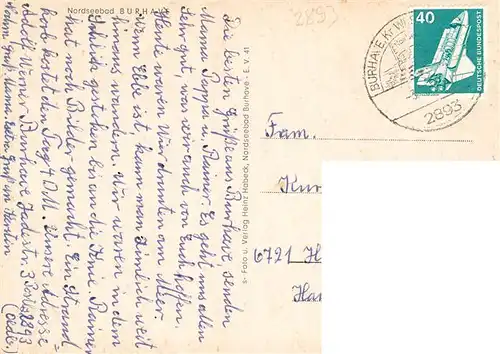 Nordseebad BURHAVE
2893
Die besten Grüße aus Burhave, senden
Mama Pappa u. Rainer. Es geht uns allen
sehr gut, was wir auch von Euch hoffen.
Heute waren Wir drunten am Meer
Wenn Ebbe ist, kann man ziemlich weit
hinaus wandern. Wir waren in dem
gestochen bis an die Knie, Rainer
hat noch Bilder gemacht. Ein Strand
korb kostet den Tag 4 DM. Unsere Adresse =
Adolf Werner Burhave Jadestr. 3 Post. 2893
(Oldb.)
s- Foto u. Verlag Heinz Habeck, Nordseebad Burhave - E. V. 41
40
DEUTSCHE BUNDESPOST
BURHAVE, Kr. W
2893
Fam.
Kur
6721 H
Ha